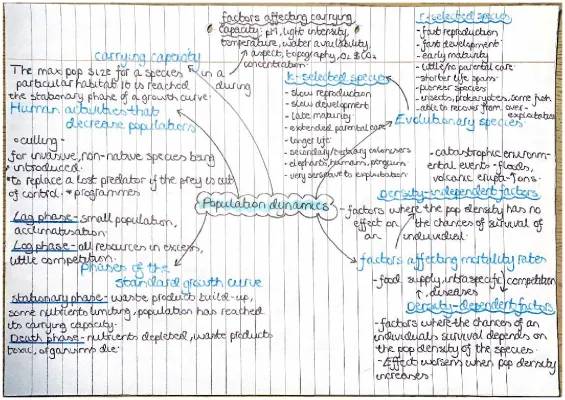 factors affecting carrying
capacity: pH, light intensity,
temperature, water availability,
aspect, topography, O₂ & CO₂
concentration
carrying capacity
The max pop size for a species in a
particular habitat. It is reached during
the stationary phase of a growth curve
Human activities that
decrease populations
- culling -
for invasive, non-native species being
introduced
*to replace a lost predator if the prey is out
of control *programmes
Population dynamics
Lag phase - small population,
acclimatisation
Log phase - all resources in excess,
little competition.
Phases of the
standard growth curve
Stationary phase - waste products build-up,
some nutrients limiting, population has reached
its carrying capacity.
Death phase - nutrients depleted, waste products
toxic, organisms die.
k-selected species
- slow reproduction
- slow development
- late maturity
- extended parental care
- longer life
- secondary/tertiary colonisers
- elephants, humans, penguins
- very sensitive to exploitation
r-selected species
- fast reproduction
- fast development
- early maturity
- little/no parental care
- shorter life spans
- pioneer species
- insects, prokaryotes, some fish
able to recover from over-
exploitation
Evolutionary species
- catastrophic environm-
ental events - floods,
volcanic erupt-ions.
Density-independent factors
- factors where the pop density has no
effect on the chances of survival of
an individual.
factors affecting mortality rates
- food supply, intraspecific competition
↑ diseases
Density-dependent factors
- factors where the chances of an
individuals survival depends on
the pop density of the species.
- Effect worsens when pop density
increases